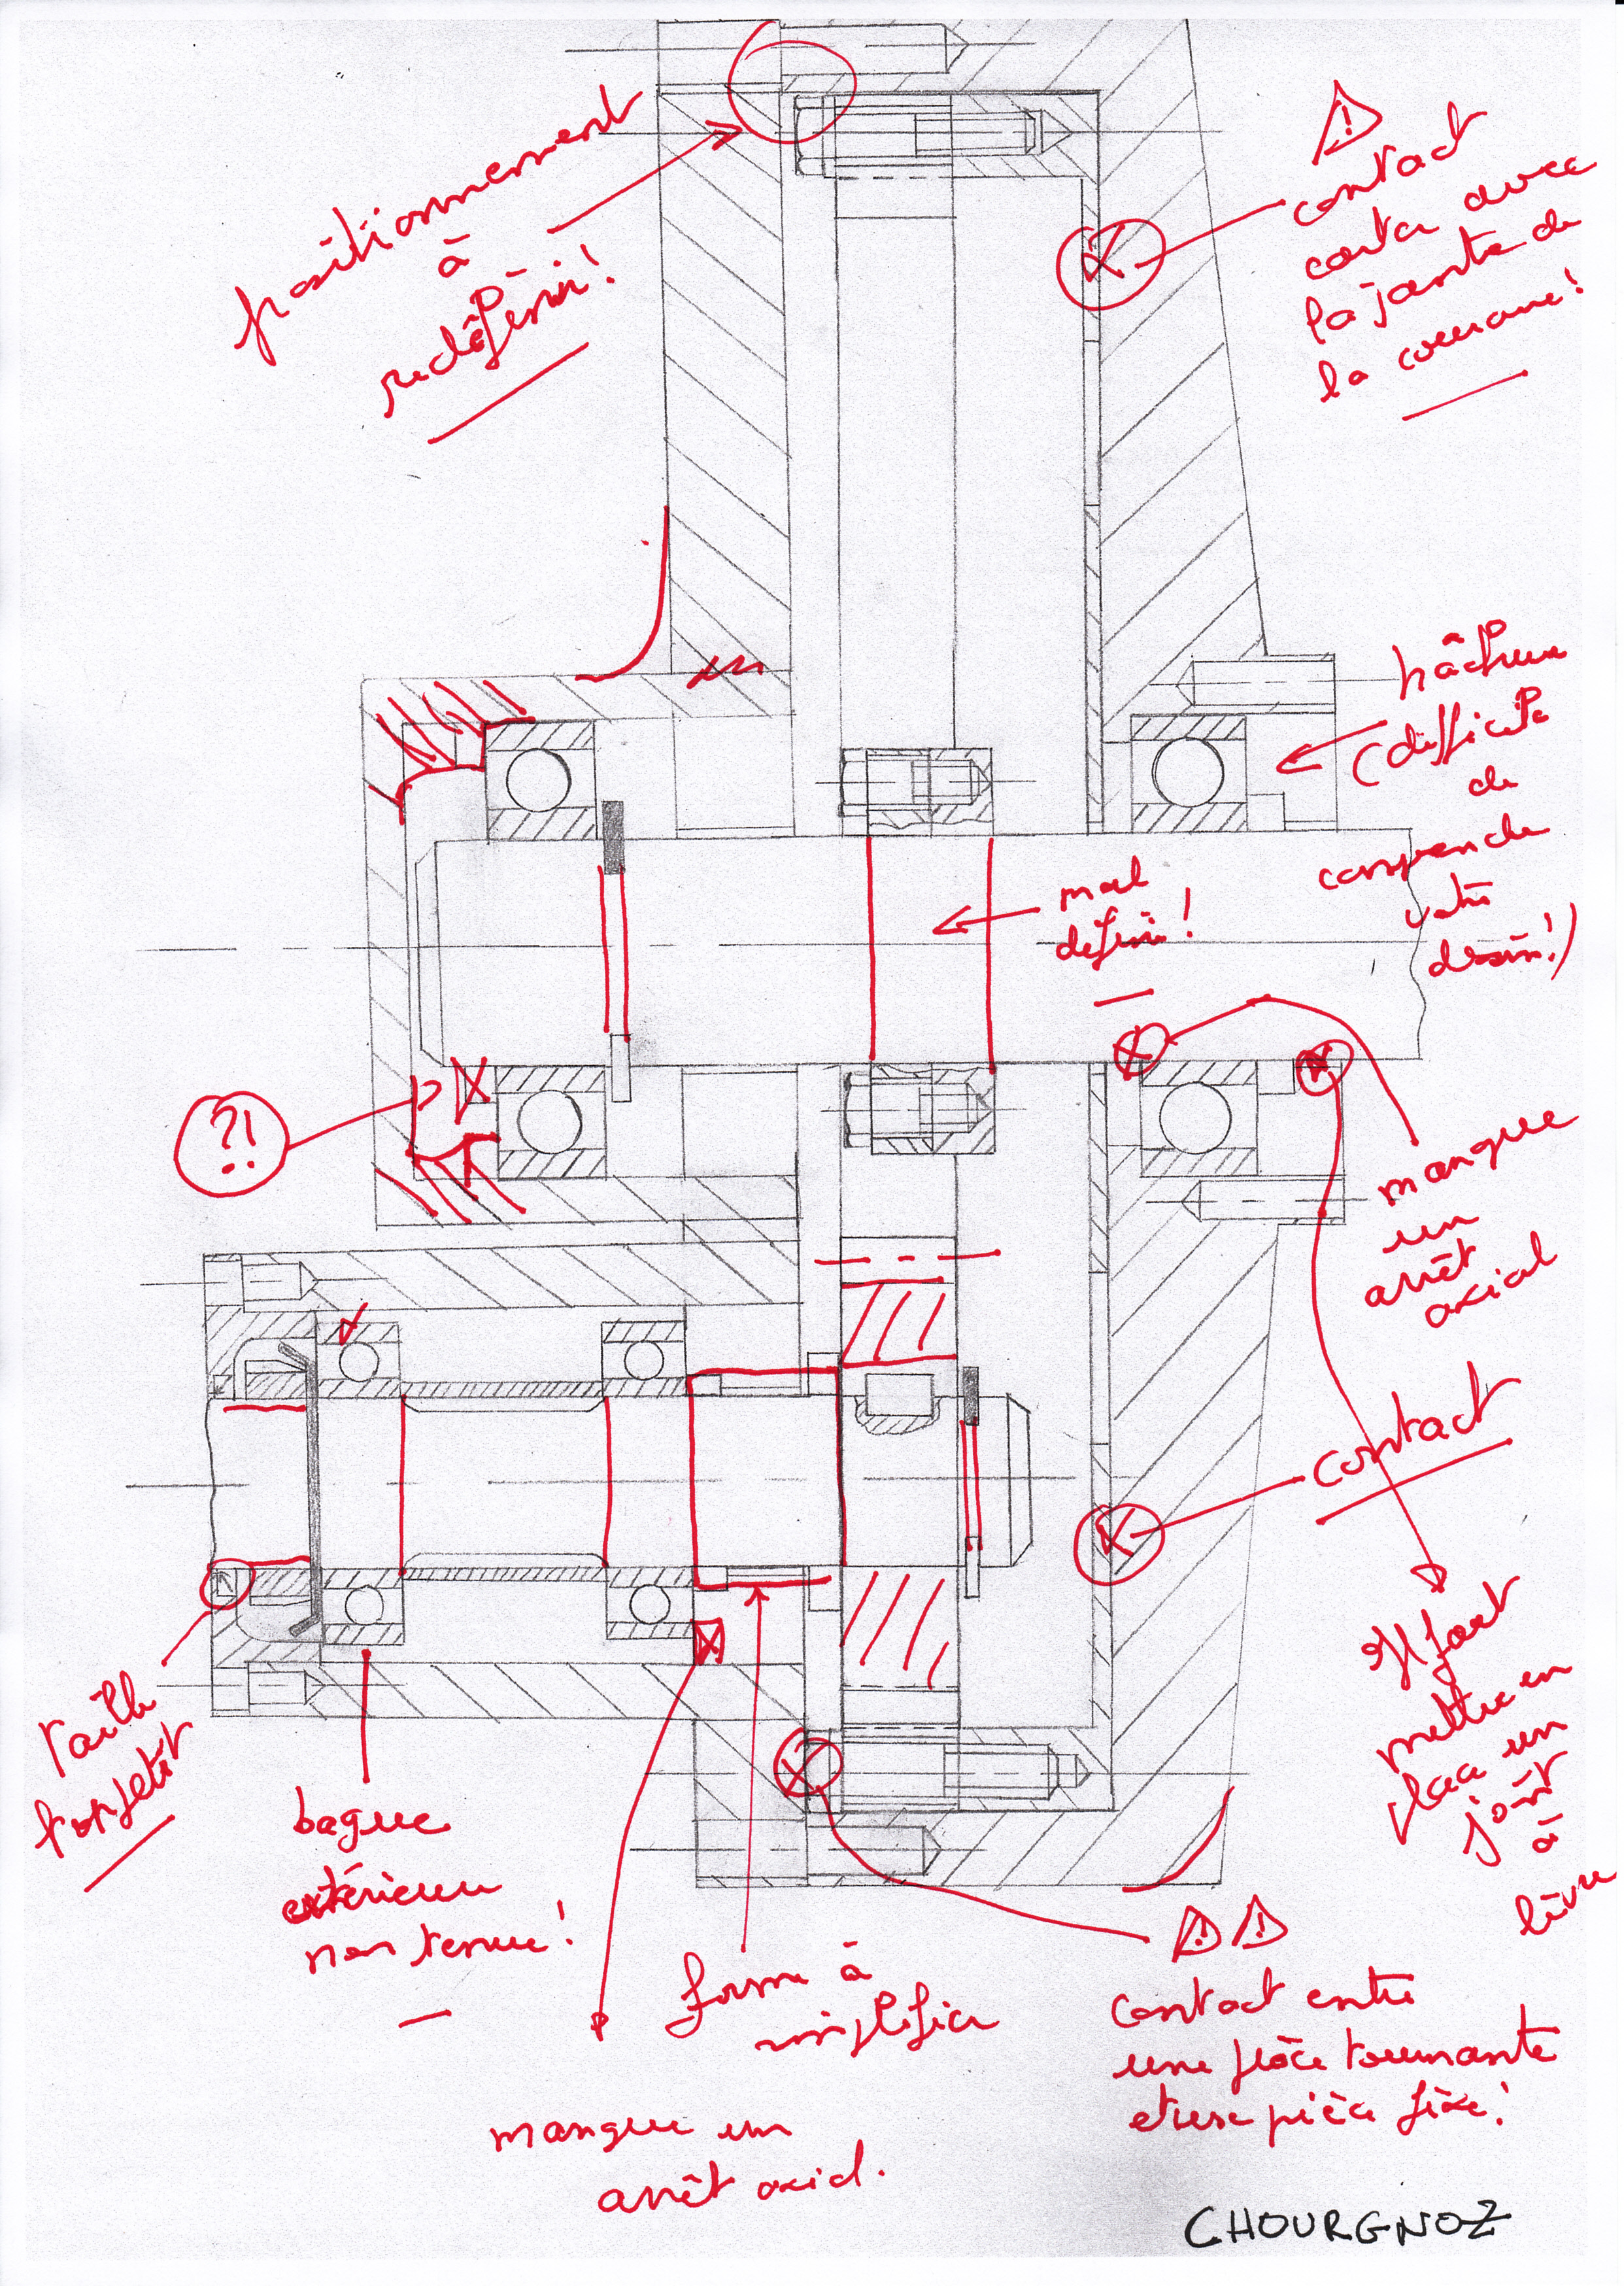 positionnement
à
redéfinir!
contact
carter avec
la jante de
la couronne!
hâchure
(difficile
de
comprendre
votre
dessin!)
mal
défini!
?!
manque
un
arrêt
axial
contact
Il faut
mettre en
place un
joint
à
lèvre
taille
bague
extérieure
non tenue!
forme à
simplifier
manque un
arrêt axial.
contact entre
une pièce tournante
et une pièce fixe!
CHOURGNOZ